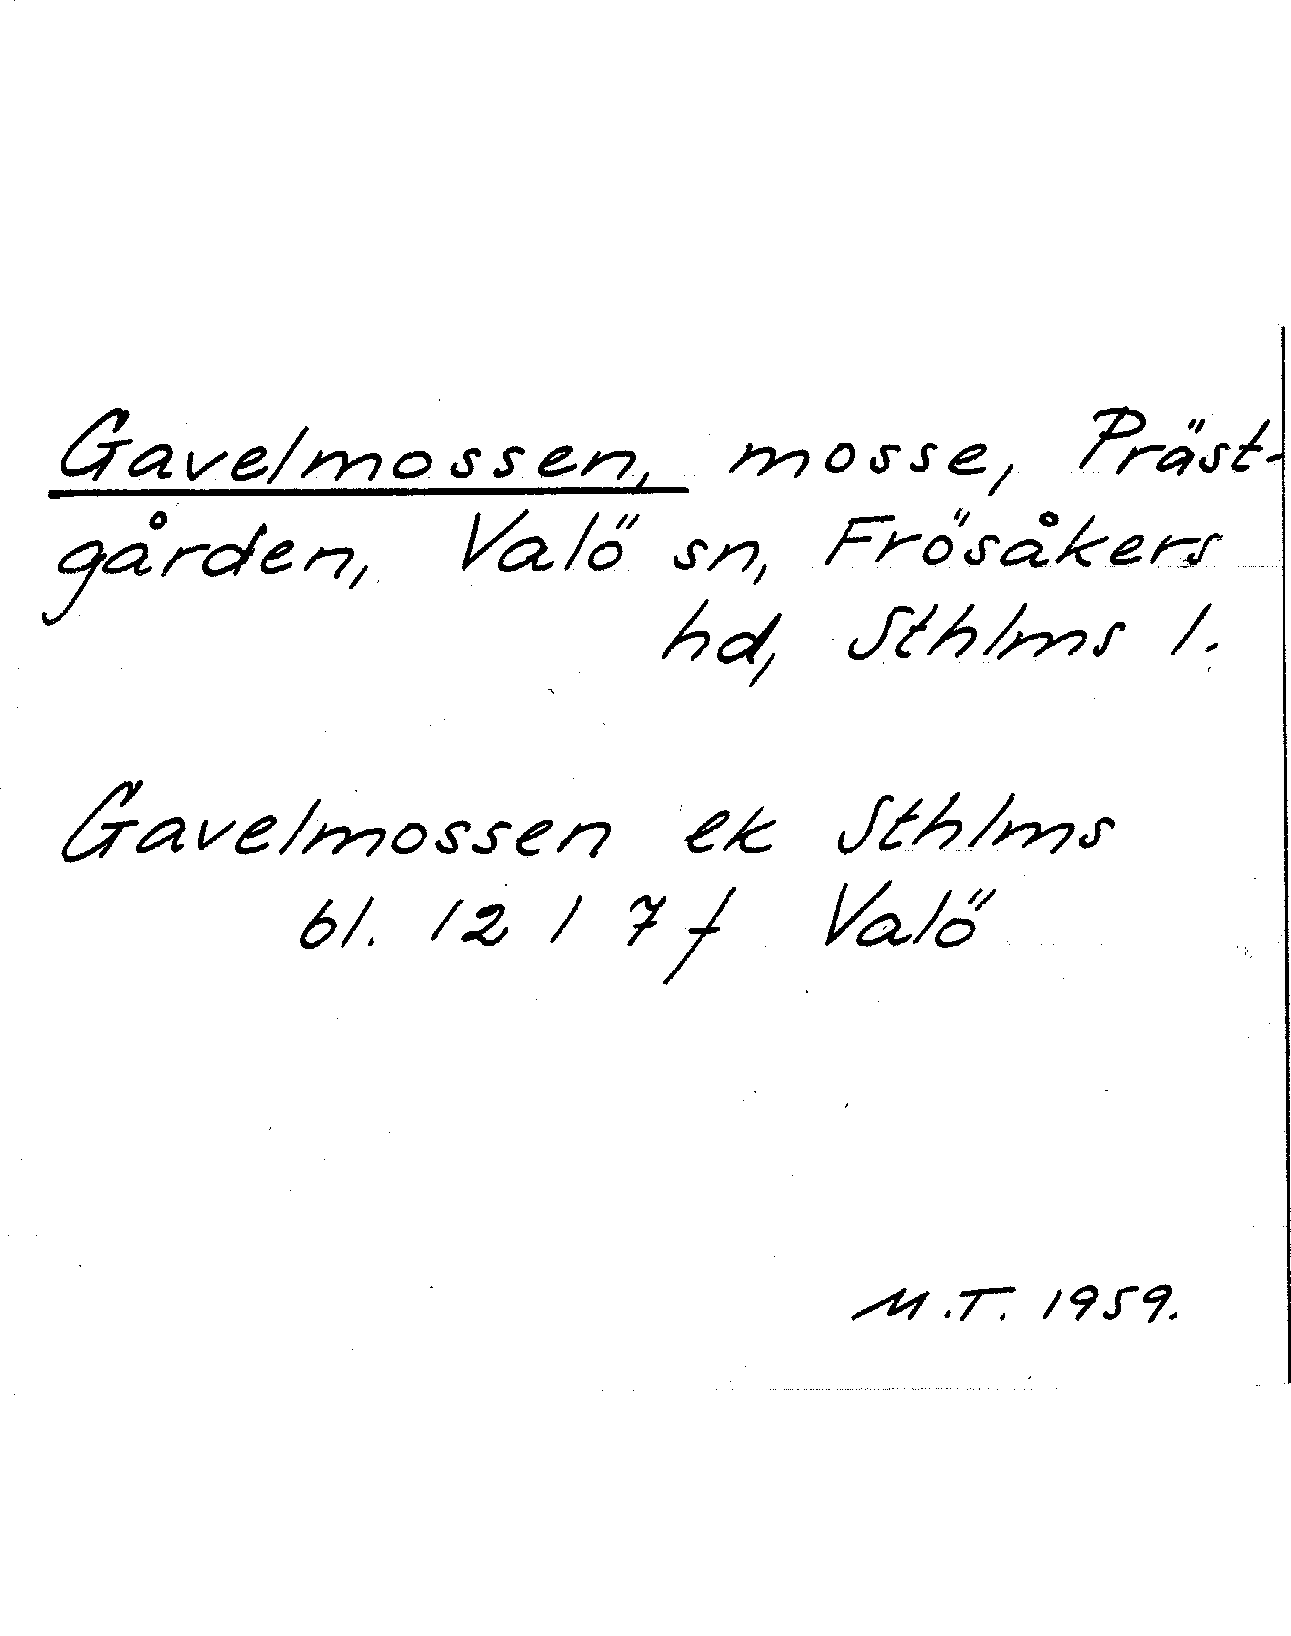 Gavelmossen, mosse, Präst-
gården, Valö sn, Frösåkers
hd, Sthlms l.
Gavelmossen ek Sthlms
bl. 12 I 7 f Valö
M.T. 1959.